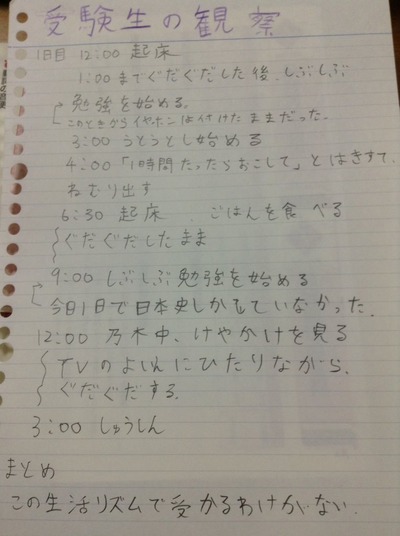 受験生の観察
1日目 12:00 起床
1:00までぐだぐだした後、しぶしぶ
勉強を始める。
このときからイヤホンは付けたままだった。
3:00 うとうとし始める
4:00 「1時間たったらおこして」とはきすて、
ねむり出す
6:30 起床 ごはんを食べる
ぐだぐだしたまま
9:00 しぶしぶ勉強を始める
今日1日で日本史しかしていなかった。
12:00 乃木中、けやかけを見る
TVのよいんにひたりながら、
ぐだぐだする。
3:00 しゅうしん
まとめ
この生活リズムで受かるわけがない。